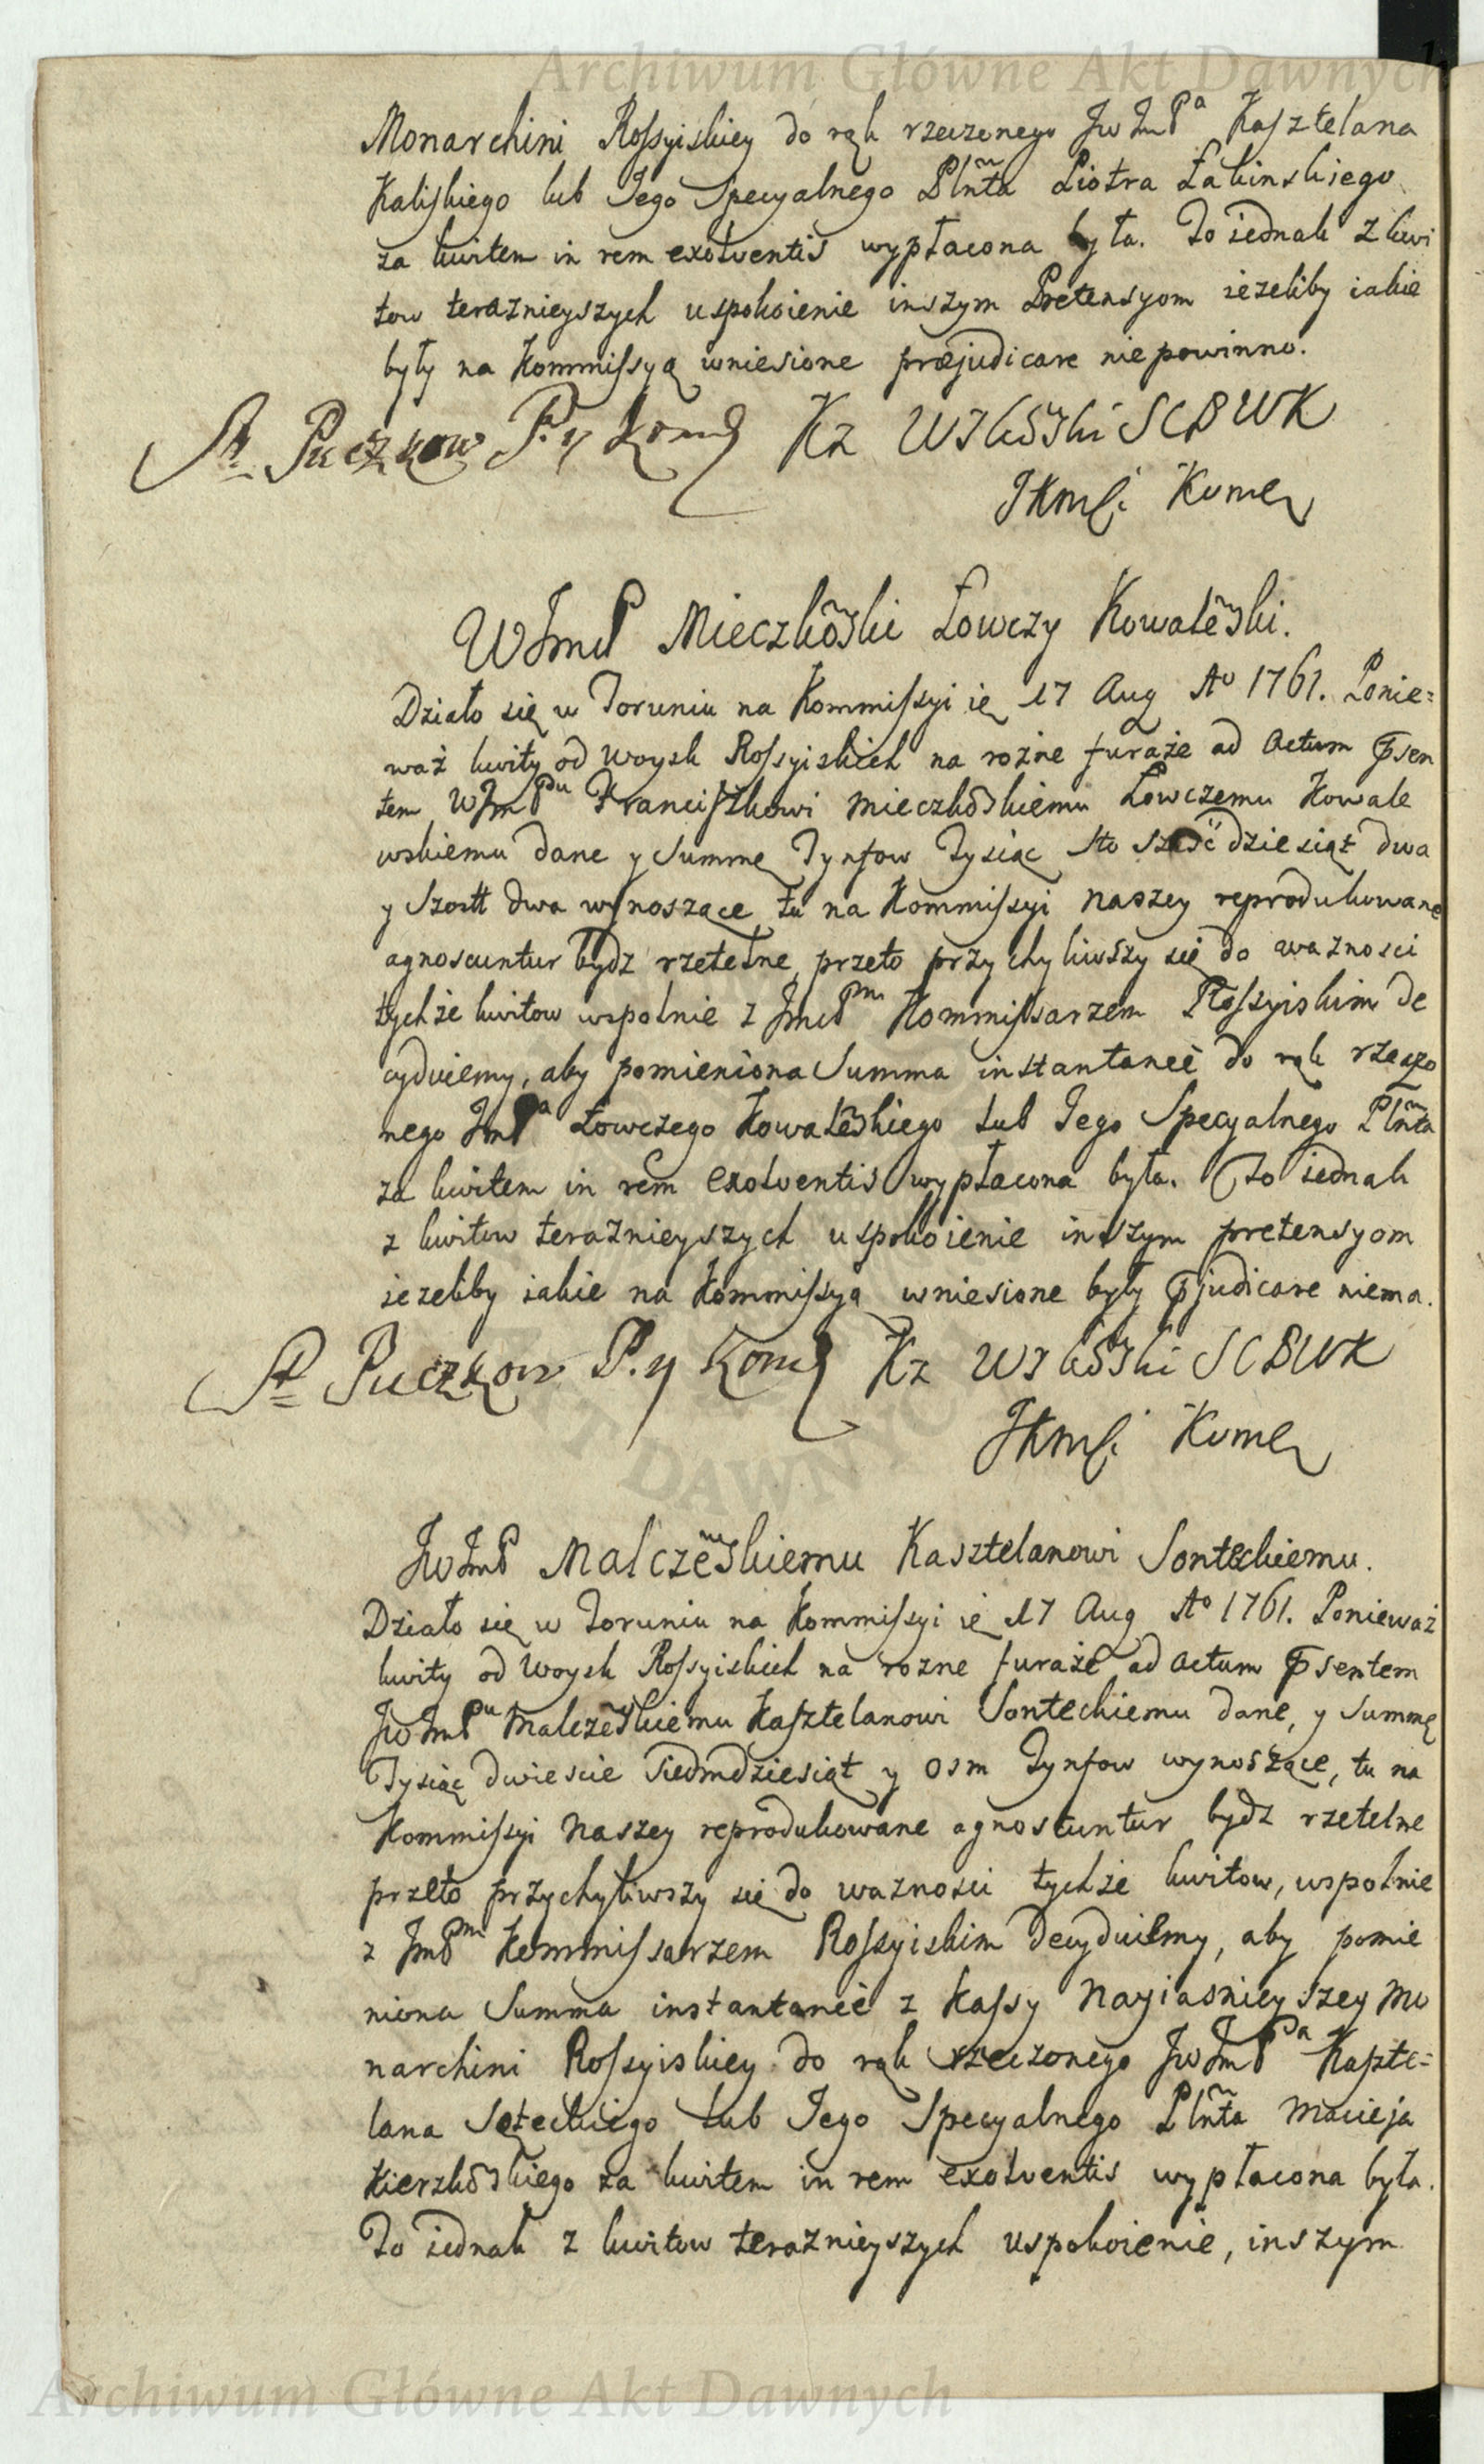 Archiwum Główne Akt Dawnych
Monarchini Rossyiskiey do rąk rzeczonego Jw JmPa Kasztelana
Kaliskiego lub Jego Specyalnego Plnta Piotra Łakinskiego
za kwitem in rem exolventis wypłacona była. To iednak z kwi
tow teraznieyszych uspokoienie inszym Pretensyom ieżeliby iakie
były na Kommissyą wniesione præjudicare niepowinno.
St. Puczkow P. y Kom Kz SCBWK
Kome
WJmP Mieczkõski Łowczy Kowalẽski.
Działo się w Toruniu na Kommissyi ię 17 Aug Ao 1761. Ponie=
waż kwity od Woysk Rossyiskich na rożne furaże ad Actum Psen
tem WJmPu Franciszkowi Mieczkõskiemu Łowczemu Kowale
wskiemu dane y Summę Tynfow Tysiąc sto sześćdziesiąt dwa
y Szostk dwa wynoszące tu na Kommissyi naszey reprodukowane
agnoscuntur bydz rzetelne, przeto przychyliwszy się do ważnosci
tychże kwitow wspolnie z JmcPm Kommissarzem Rossyiskim de
cyduiemy, aby pomieniona Summa instantanee do rąk rzeczo
nego JmPa Łowczego Kowalẽskiego lub Jego Specyalnego Plnta
za kwitem in rem exolventis wypłacona była. To iednak
z kwitow teraznieyszych uspokoienie inszym pretensyom
ieżeliby iakie na Kommissyą wniesione były Pjudicare niema.
St. Puczkow P. y Kom Kz SCBWK
Kome
JwJmP Malczẽskiemu Kasztelanowi Sonteckiemu.
Działo się w Toruniu na Kommissyi ię 17 Aug Ao 1761. Ponieważ
kwity od Woysk Rossyiskich na rozne furaże ad Actum Psentem
JwJmPu Malczẽskiemu Kasztelanowi Sonteckiemu dane, y Summę
Tysiąc dwiescie siedmdziesiąt y osm Tynfow wynoszące, tu na
Kommissyi naszey reprodukowane agnoscuntur bydz rzetelne
przeto przychyliwszy się do waznosci tychże kwitow, wspolnie
z JmPm Kommissarzem Rossyiskim decyduiemy, aby pomie
niona Summa instantanee z Kassy Nayiasnieyszey Mo
narchini Rossyiskiey do rąk rzeczonego JwJmPa Kaszte=
lana Sąteckiego lub Jego Specyalnego Plnta Macieja
Kierzkõskiego za kwitem in rem exolventis wypłacona była.
To iednak z kwitow teraznieyszych uspokoienie, inszym
Archiwum Główne Akt Dawnych